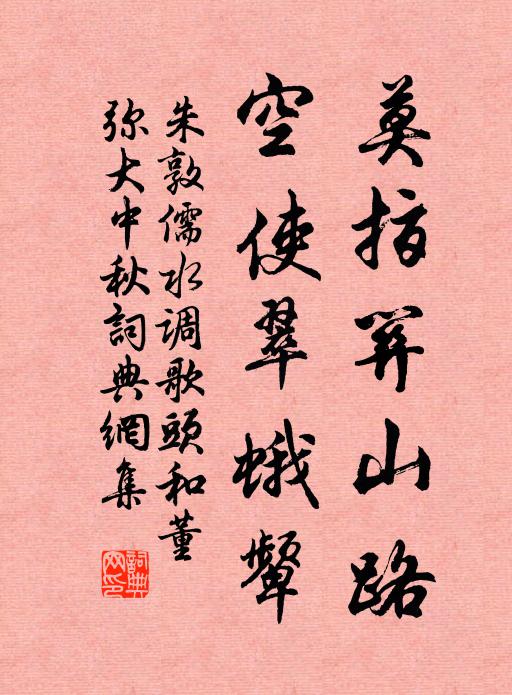 莫指關山路
空使翠蛾顰
朱敦儒水调歌頭和董
弥大中秋詞典網集
詞典網印